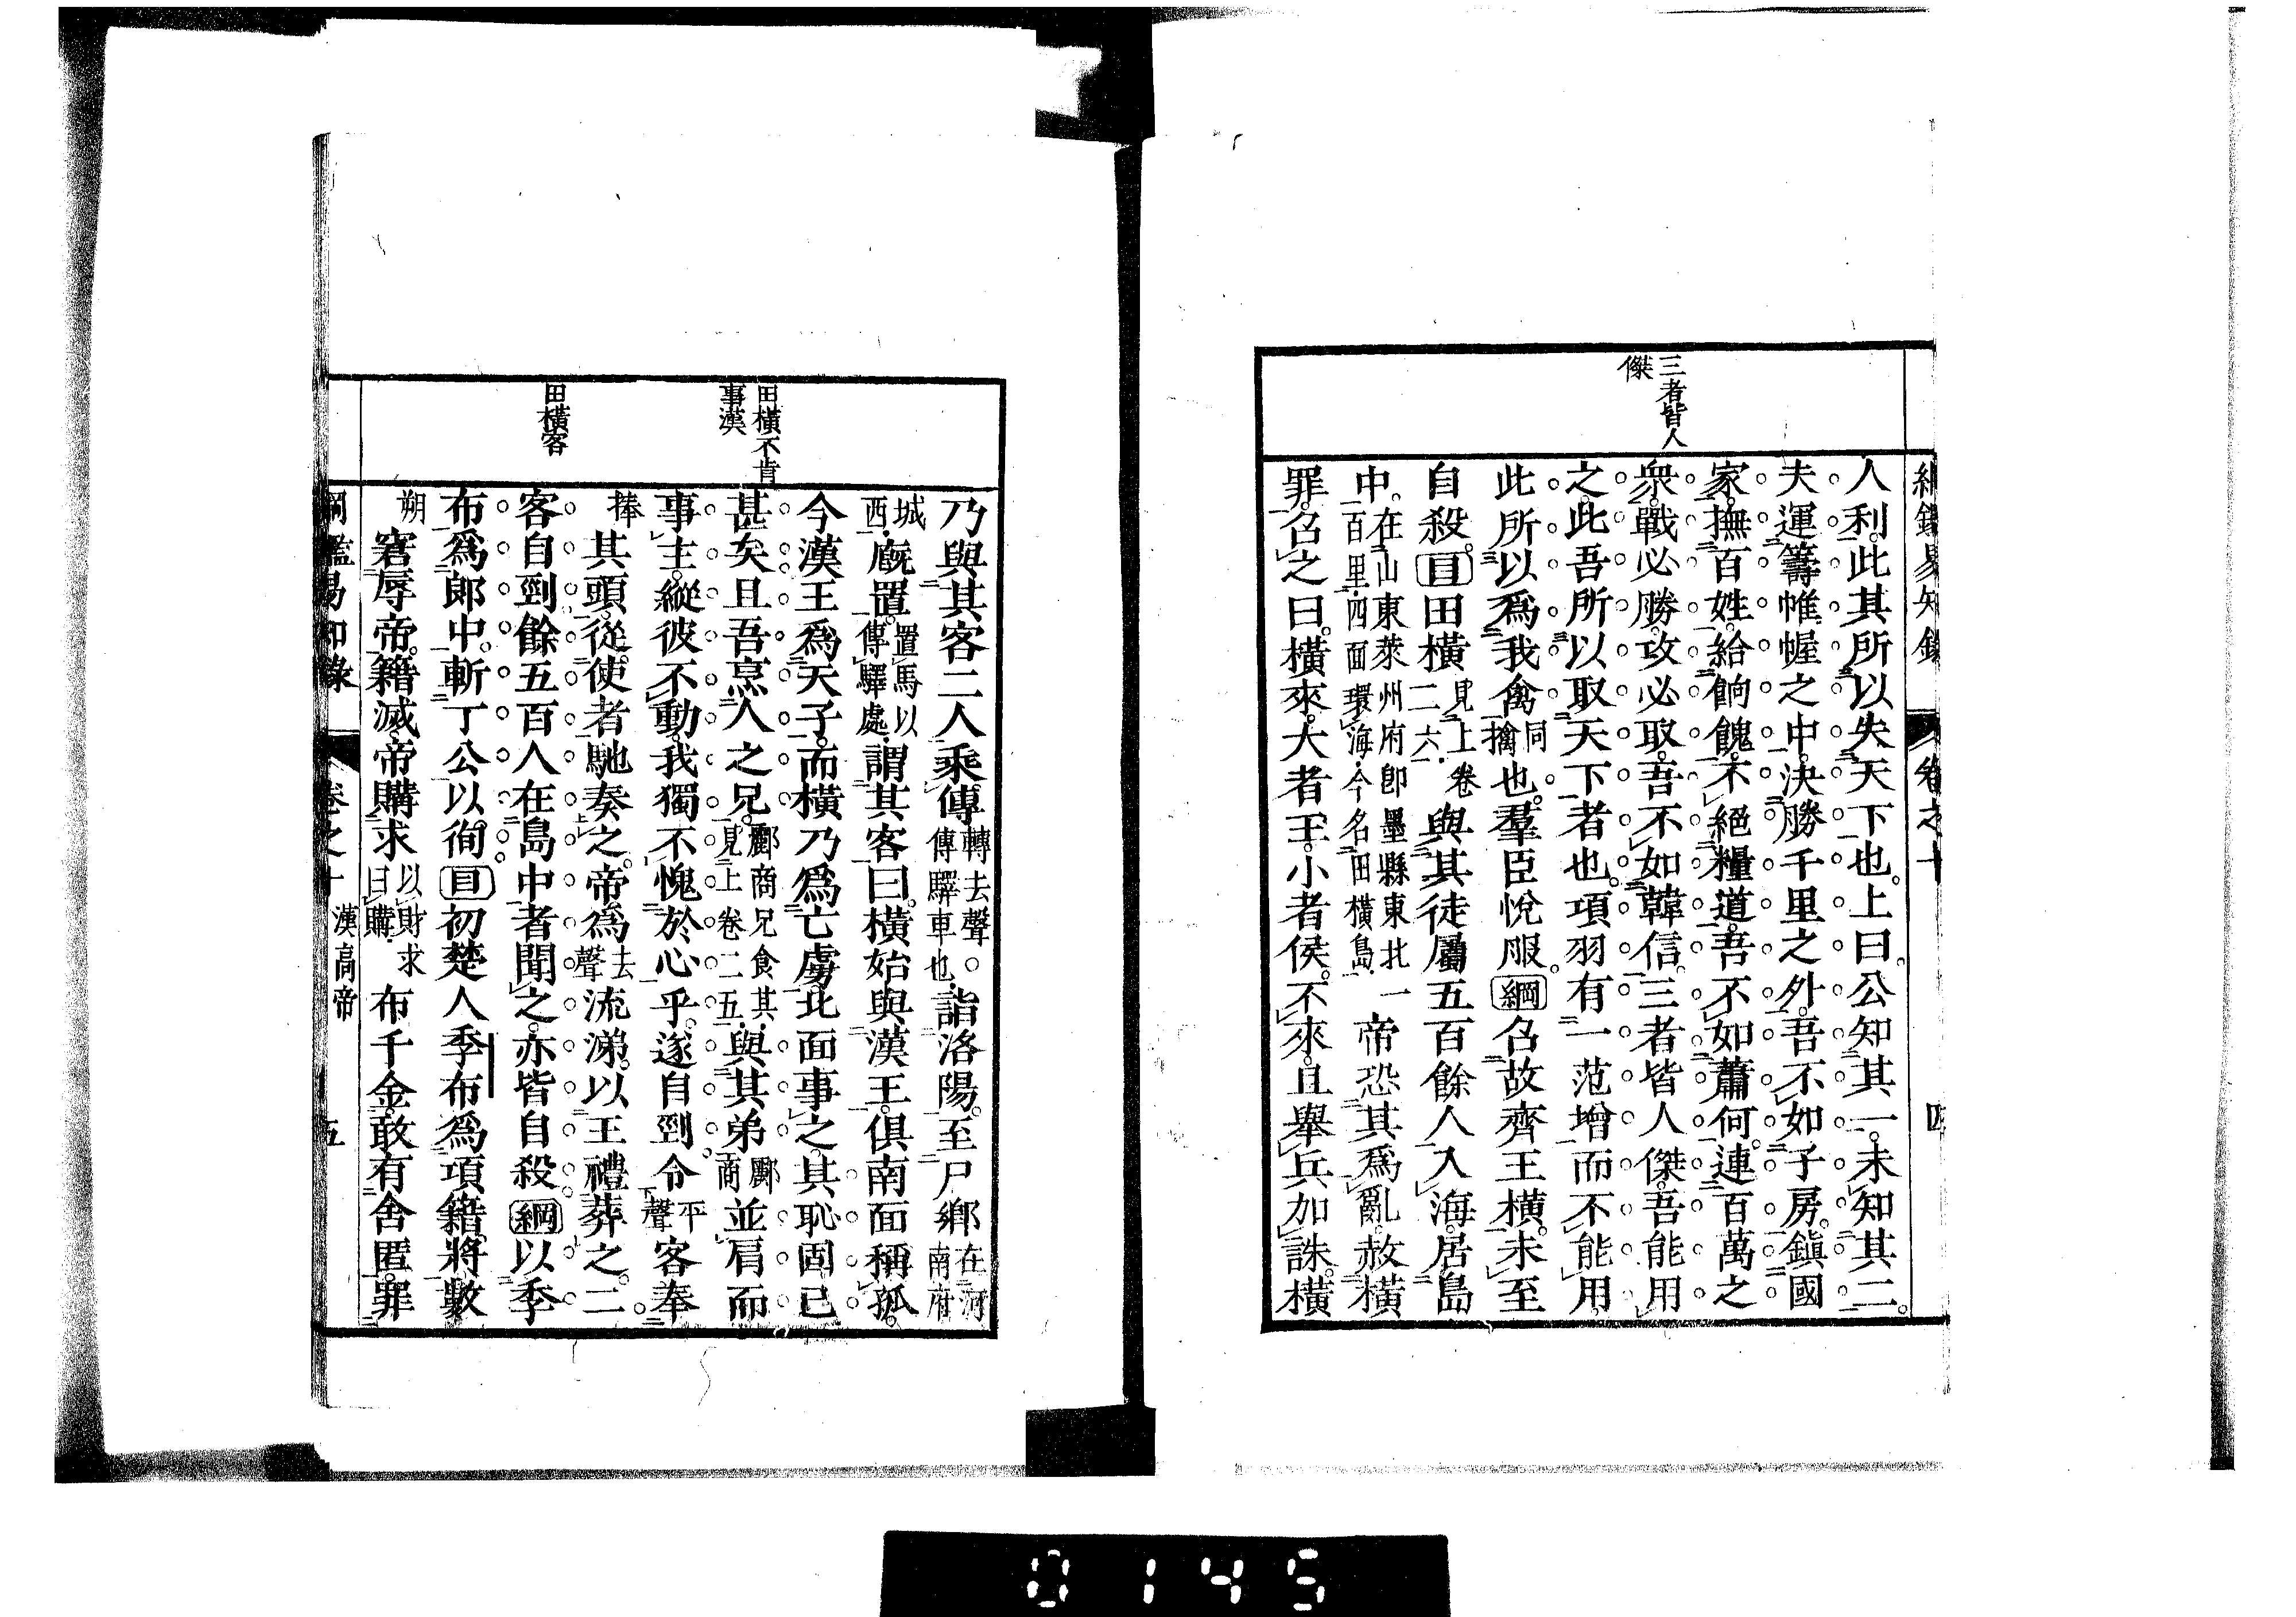 綱鑑易知錄 卷之十 四
三者皆人
傑
人利此其所以失天下也。上曰。公知其一。未知其二。
夫運籌帷幄之中。決勝千里之外。吾不如子房。鎮國
家。撫百姓。給餉餽。不絕糧道。吾不如蕭何。連百萬之
衆。戰必勝。攻必取。吾不如韓信。三者皆人傑。吾能用
之。此吾所以取天下者也。項羽有一范增而不能用。
此所以爲我禽同擒也。羣臣悅服。綱召故齊王橫。未至
自殺。目田橫見上卷二六與其徒屬五百餘人入海。居島
中。在山東萊州府卽墨縣東北一百里。四面環海。今名田橫島。帝恐其爲亂。赦橫
罪。召之曰。橫來。大者王。小者侯。不來。且舉兵加誅。橫
田橫不肯
事漢
田橫客
乃與其客二人乘傳轉去聲。傳驛車也。詣洛陽。至尸鄉在河南府
城西。廐置。置馬以傳驛處。謂其客曰。橫始與漢王俱南面稱孤。
今漢王爲天子。而橫乃爲亡虜。北面事之。其恥固已
甚矣。且吾烹人之兄。酈商兄食其。見上卷二五。與其弟酈商並肩而
事主。縱彼不動。我獨不愧於心乎。遂自剄。令平聲客奉
捧其頭。從使者馳奏之。帝爲去聲流涕。以王禮葬之。二
客自剄。餘五百人在島中者聞之。亦皆自殺。綱以季
布爲郎中。斬丁公以徇。目初楚人季布爲項籍將。數
朔窘辱帝。籍滅。帝購求以財求曰購。布千金。敢有舍匿。罪
綱鑑易知錄 卷之十 漢高帝 五
0145